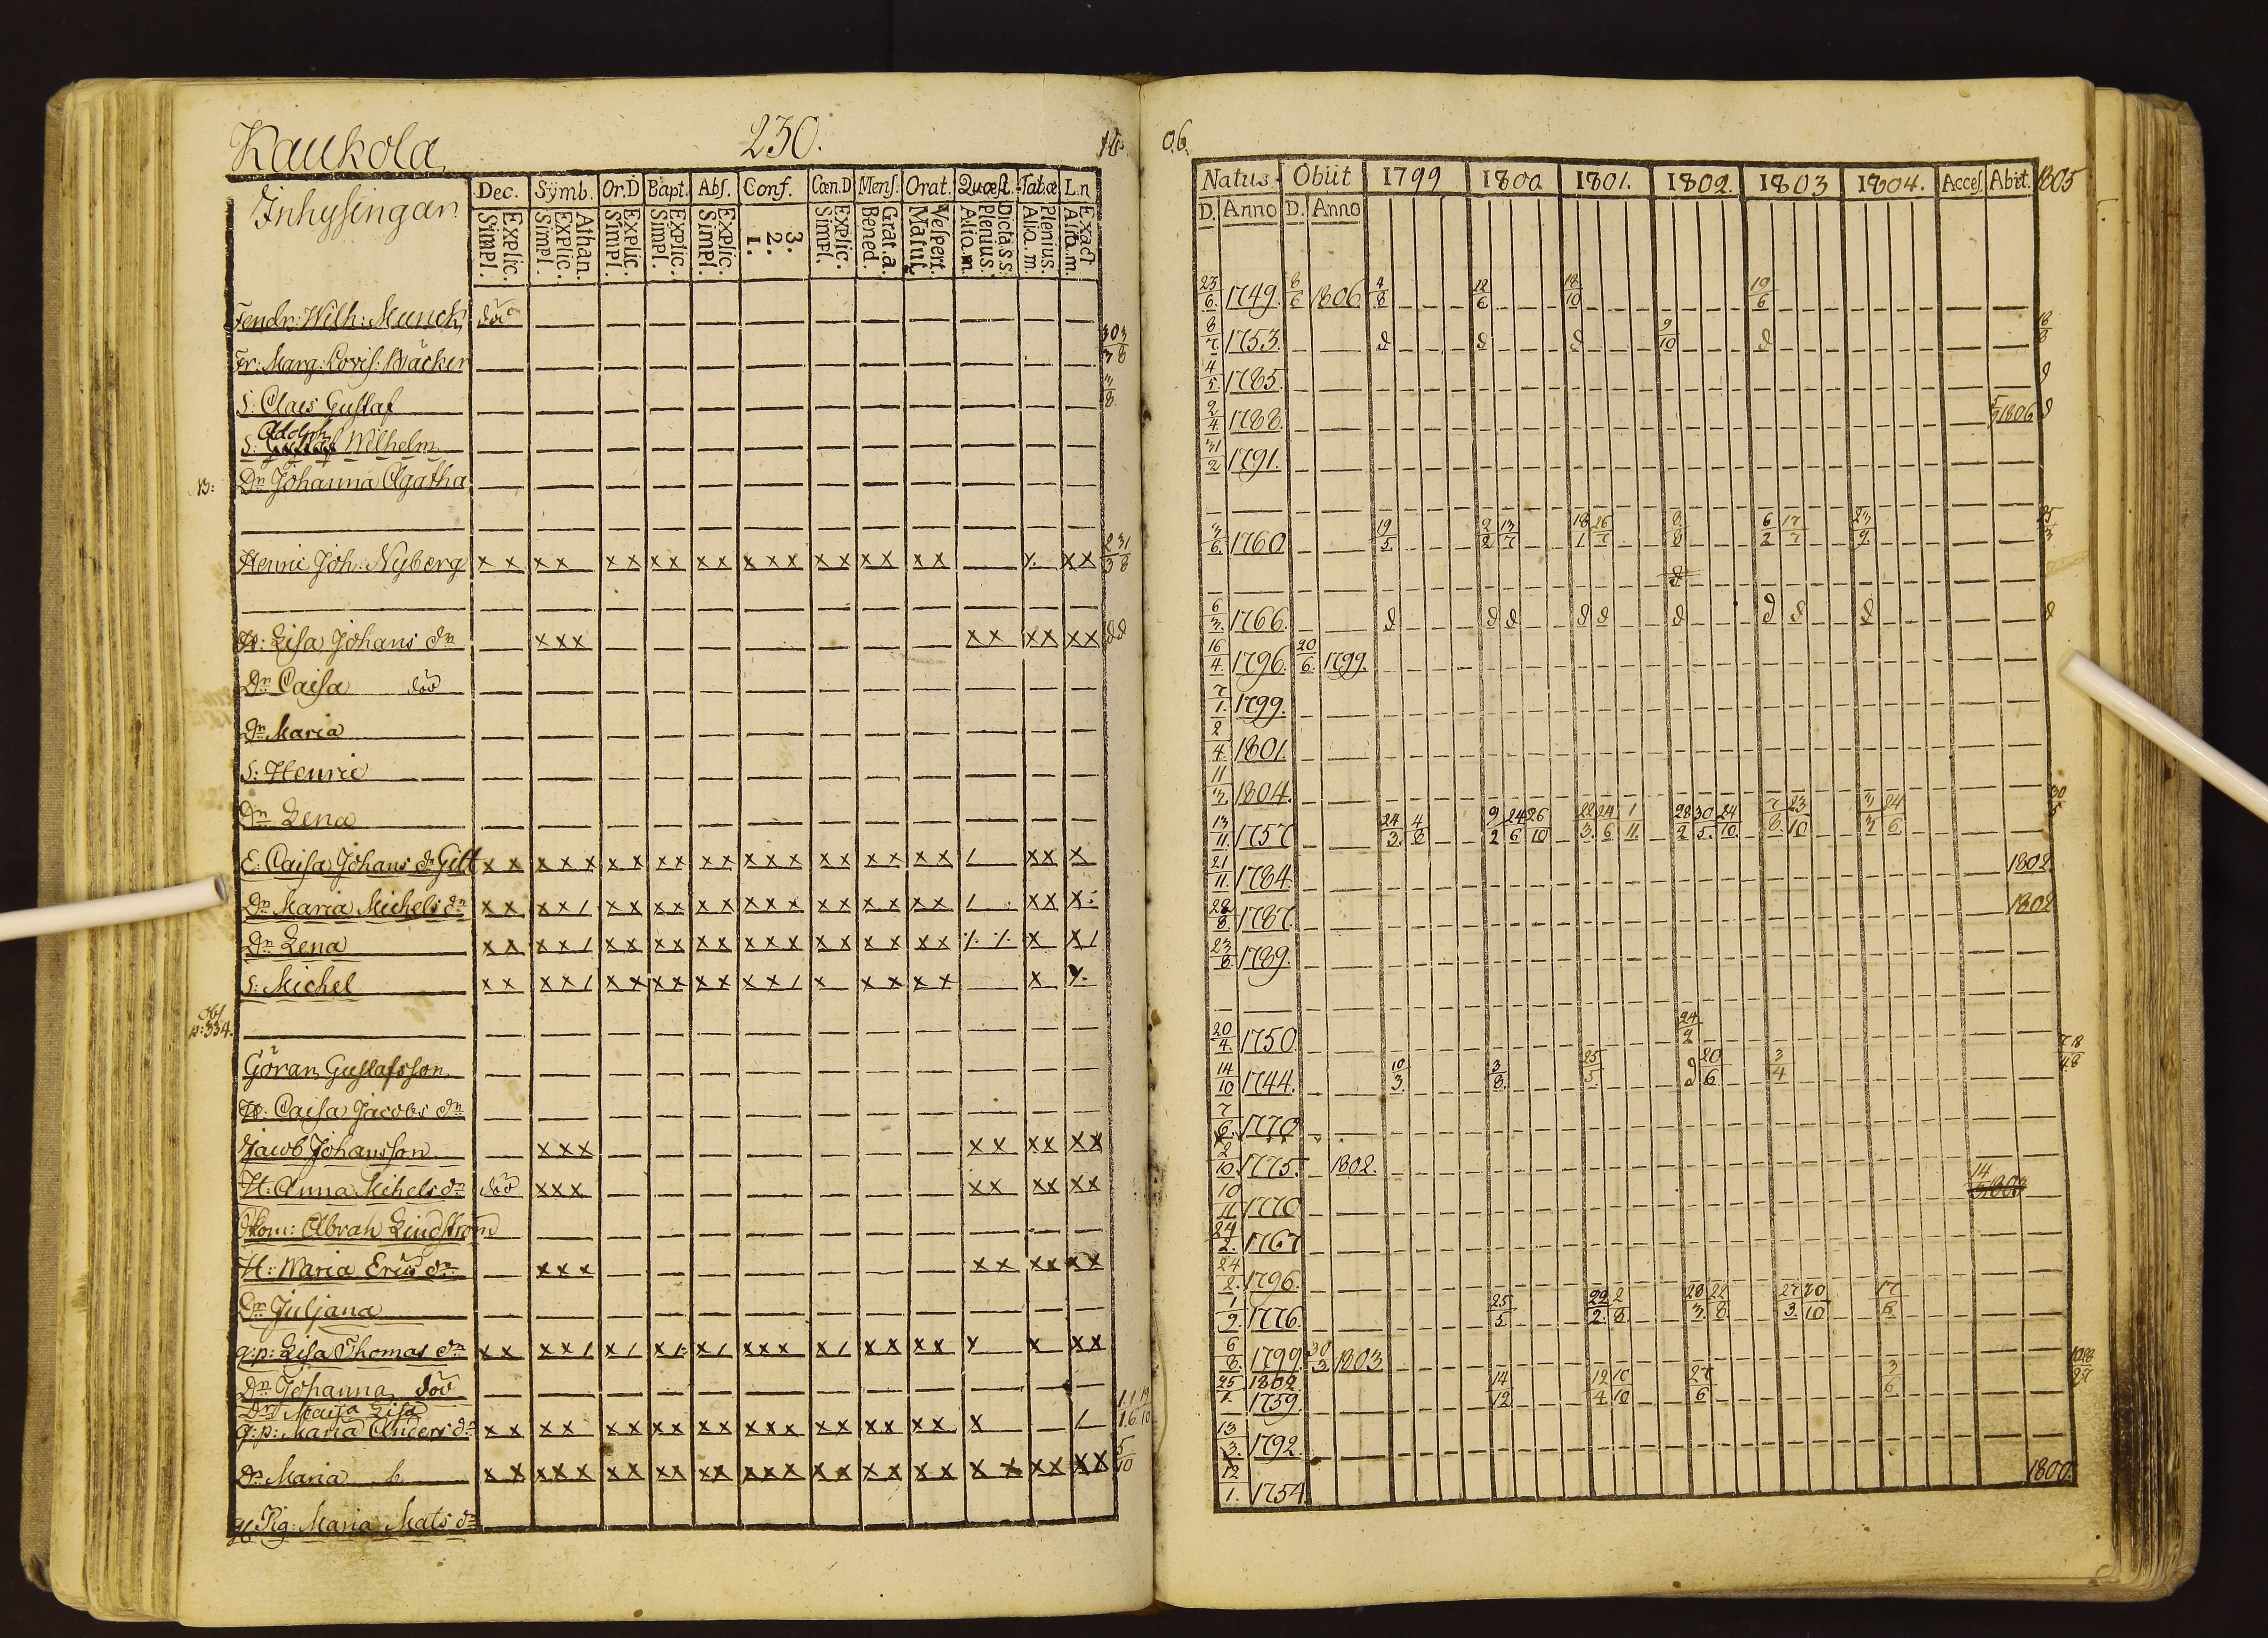 Kaukola 230. 18 06.
Inhysingar
Dec. Symb. Or.D Bapt. Abs. Conf. Cœn.D Mens. Orat. Quæst. Tab.œ L.n
Explic. Simpl. Athan. Explic. Simpl. Explic. Simpl. Explic. Simpl. Explic. Simpl. 3. 2. 1. Explic. Simpl. Grat.a. Bened. Vespert. Matut. Dicta.s.s. Plenius. Aliq.m. Plenius. Aliq.m. Exact Aliq.m.
Fendr: Wilh: Munck död
Fr: Marg: Lovis: Bäcker
S: Claes Gustaf
S: Adolph Wilhelm
NB: Dr Johanna Agatha
Henric Joh: Nyberg x x x x x x x x x x x x x x x x x x x x x x
H: Lisa Johans dr x x x x x x x x x
Dr Caisa död
Dr Maria
S: Henric
Dr Lena
E: Caisa Johans dr Gilt x x x x x x x x x x x x x x x x x x x x x / x x x
Dr Maria Michels dr x x x x / x x x x x x x x x x x x x x x / x x x
Dr Lena x x x x / x x x x x x x x x x x x x x x x x /
S: Michel x x x x / x x x x x x x x / x x x x x x
p: 334.
Göran Gustafsson
H: Caisa Jacobs dr
Jacob Johansson x x x x x x x x x
H: Anna Mihels dr död x x x x x x x x x
Ökom: Abrah Lindström
H: Maria Erics dr x x x x x x x x x
Dr Juljana
q:p: Lisa Thomas dr x x x x / x / x / x / x x x x / x x x x x x x x
Dr Johanna död
Dr Maja Lisa
q:p: Maria Anders dr x x x x x x x x x x x x x x x x x x x x x /
Dr Maria b. x x x x x x x x x x x x x x x x x x x x x x x x x x x
Pig: Maria Mats dr
Natus. Obiit 1799 1800 1801. 1802. 1803 1804. Acces. Abiit. 1805
D. Anno D. Anno
23/6. 1749. 8/6 1806 4/8 12/6 18/10 19/6
8/7 1753. 9/10
4/5. 1785.
2/4 1788. 1806
31/2 1791.
3/6. 1760 19/5. 2/2 13/7 18/1 26/7 8/8 6/2 17/7 23/9. 25/3
6/3. 1766.
16/4. 1796. 20/6. 1799.
7/1. 1799.
2/4. 1801.
11/3. 1804.
13/11. 1757 24/3. 4/8 9/2 24/6 26/10 22/3. 24/6 1/11. 28/2 30/5. 24/10. 7/8. 23/10 3/3 24/6. 30/5
21/11. 1784. 1802.
28/8. 1787. 1802
23/8 1789.
20/4. 1750. 24/2
14/10 1744. 10/3. 3/8. 25/5. 20/6 3/4
7/6. 1770
2/10. 1775. 1802.
10/11. 1770 14
24/2. 1767
24/2. 1796.
1/9. 1776. 25/5. 22/2. 2/8. 28/3. 22/8. 27/3. 20/10 17/6.
6/8. 1799 30/3 1803
25 1802
1. 1759. 14/12 12/4 10/10 27/6 3/6
13/3. 1792.
12/1. 1754 1800.